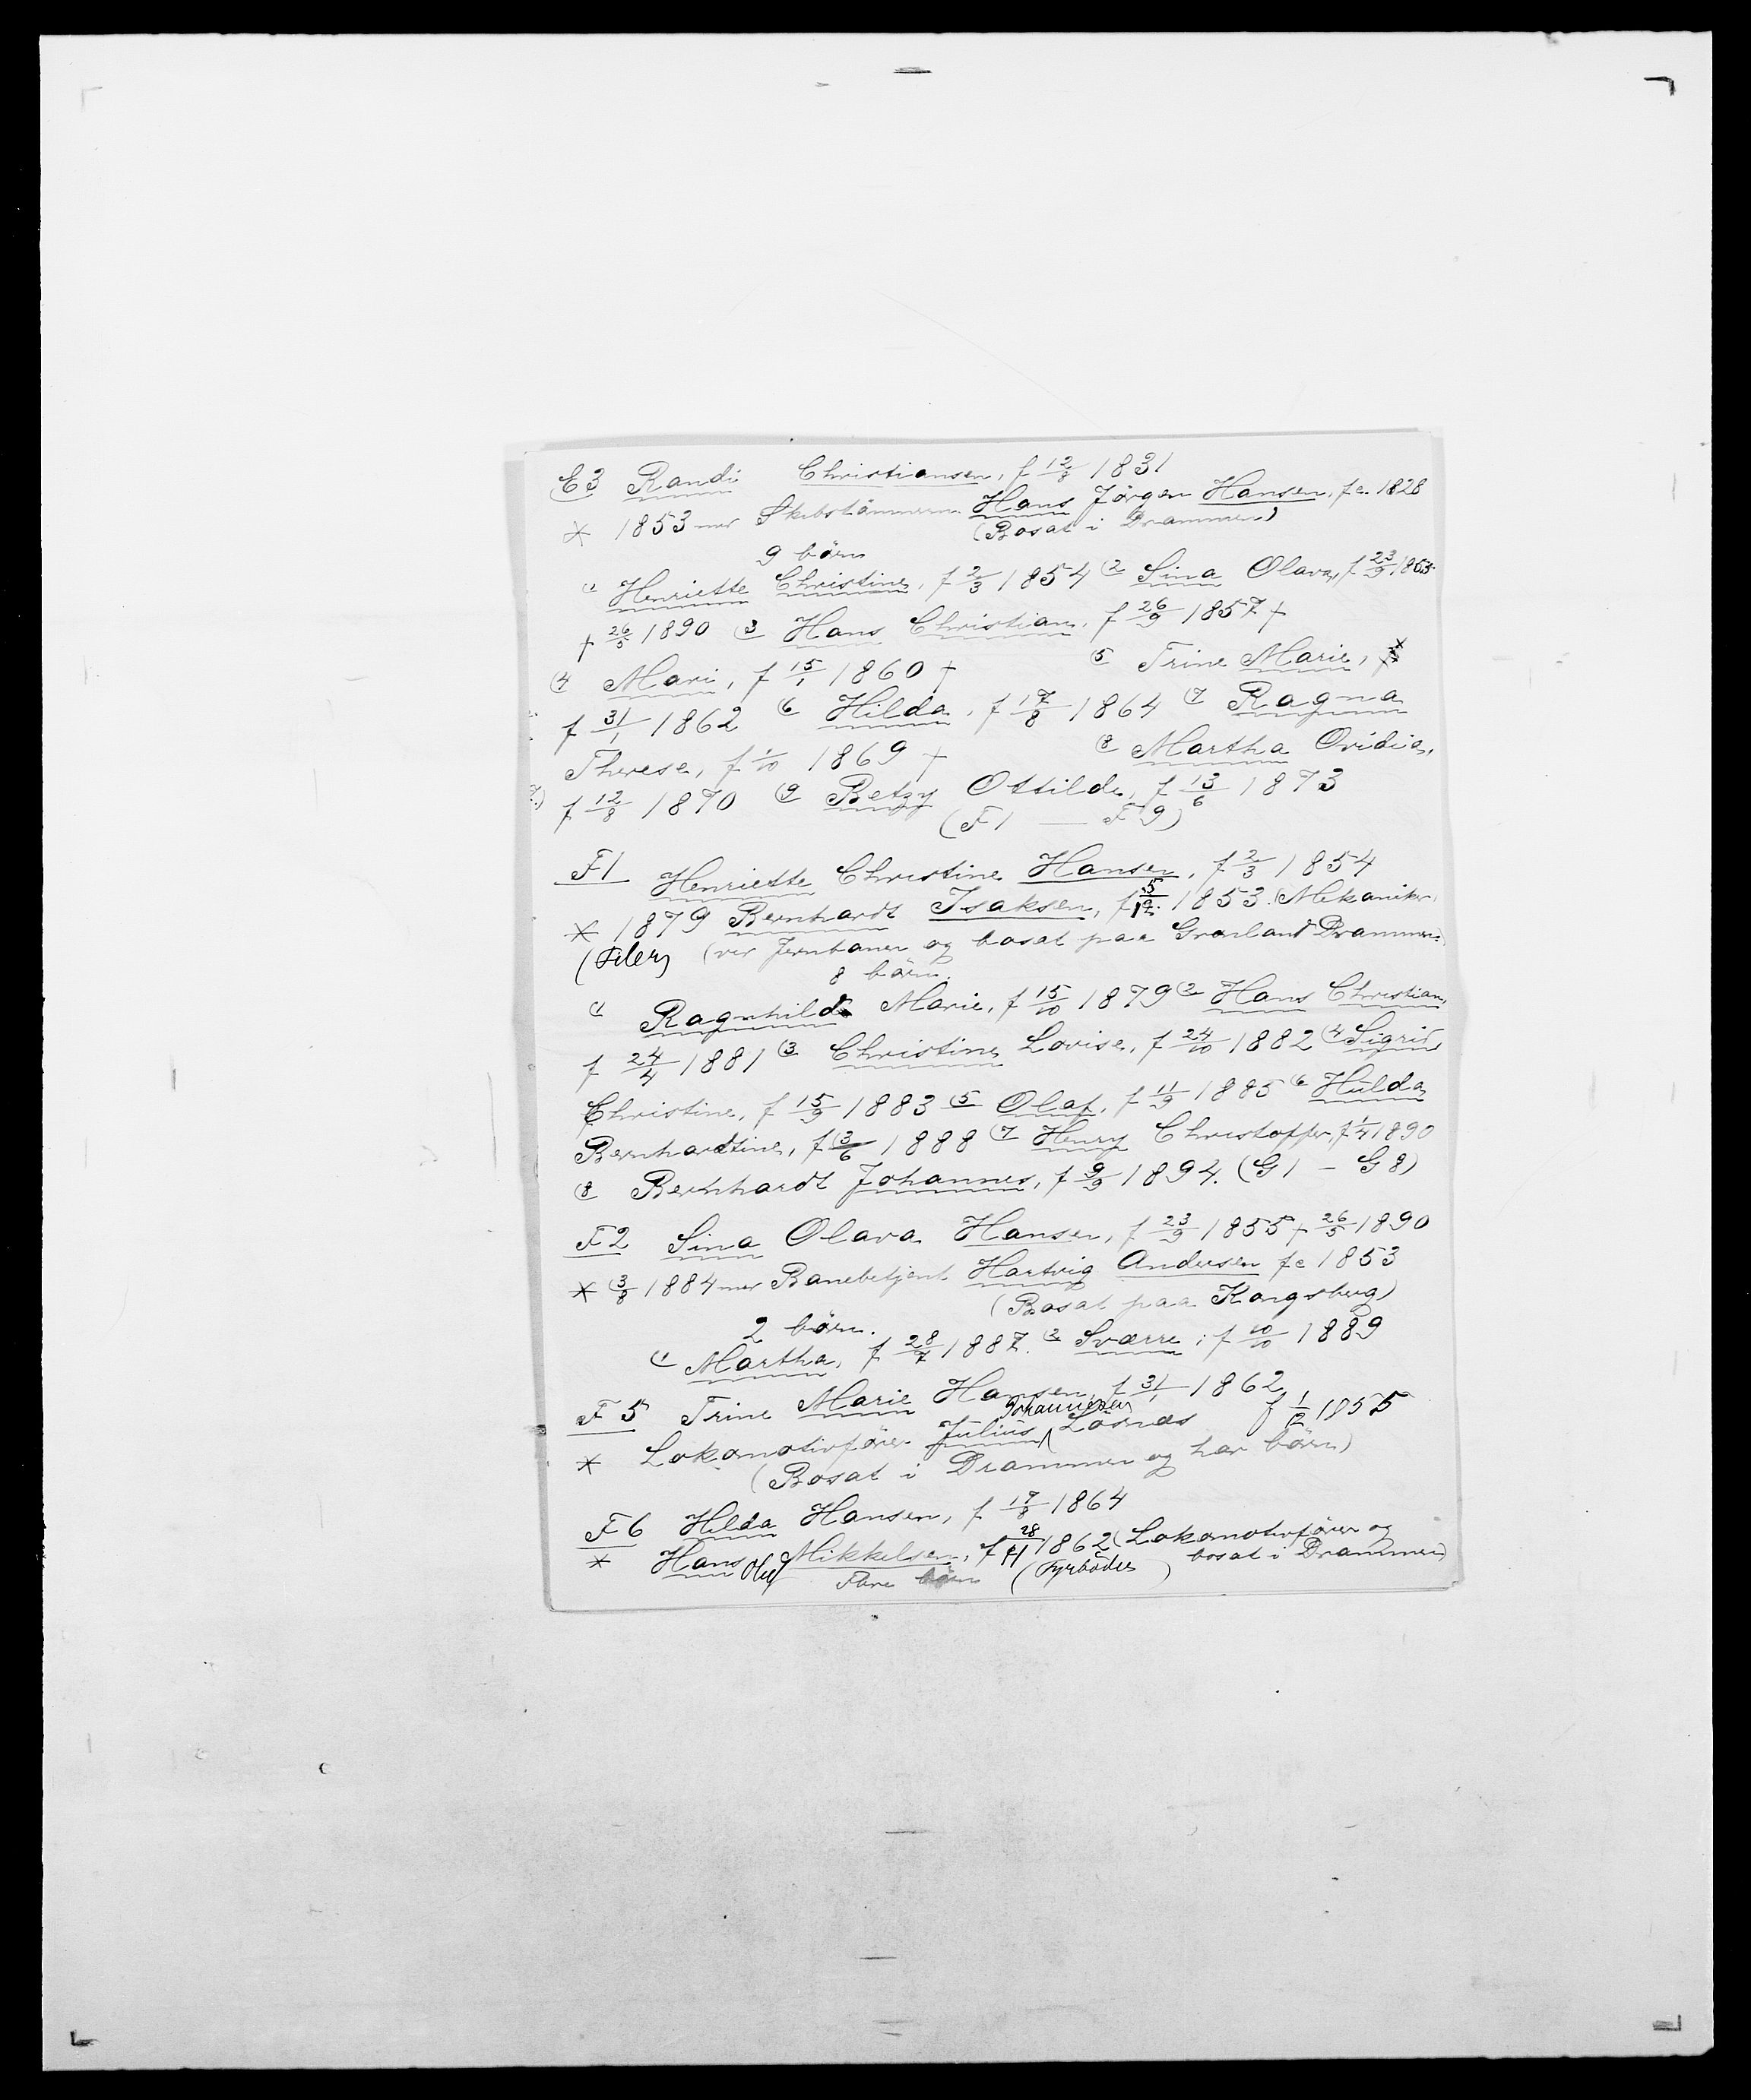 E3 Randi Christiansen, f 12/8 1831
* 1853 med Skibstömmerm. Hans Jörgen Hansen, f.c. 1828
(Bosat i Drammen)
9 börn
(1 Henriette Christine, f 2/3 1854 (2 Sina Olava, f 23/9 1855
† 26/5 1890 (3 Hans Christian, f 26/9 1857 †
(4 Mari, f 15/1 1860 † (5 Trine Marie,
f 31/1 1862 (6 Hilda, f 17/8 1864 (7 Ragna
Therese, f 1/10 1869 † (8 Martha Ovidia,
f 12/8 1870 (9 Betzy Ottilde, f 13/6 1873
(F1 — F9)
F1 Henriette Christine Hansen, f 2/3 1854
* 1879 Bernhardt Isaksen, f 5/12 1853. (Mekaniker,
(Filer) (ved Jernbanen og bosat paa Grønland Drammen
8 börn.
(1 Ragnhild Marie, f 15/10 1879 (2 Hans Christian,
f 24/4 1881 (3 Christine Lovise, f 24/10 1882 (4 Sigrid
Christine, f 15/9 1883 (5 Olaf, f 11/9 1885 (6 Hulda
Bernhardtine, f 3/6 1888 (7 Henry Christoffer, f 1/4 1890
(8 Bernhardt Johannes, f 9/9 1894. (G1 – G8)
F2 Sina Olava Hansen, f 23/9 1855 † 26/5 1890
* 3/8 1884 med Banebetjent Hartvig Andersen f c 1853
(Bosat paa Kongsberg)
2 börn.
(1 Martha, f 28/7 1887. (2 Sværre, f 10/10 1889
F5 Trine Marie Hansen, f 31/1 1862
* Lokomotivförer Julius Johannesen Lösnæs f 1/12 1855
(Bosat i Drammen og har börn)
F6 Hilda Hansen, f 17/8 1864
* Hans Oluf Mikkelsen, f 28/11 1862 (Lokomotivförer og
Flere börn (Fyrböder) bosat i Drammen)